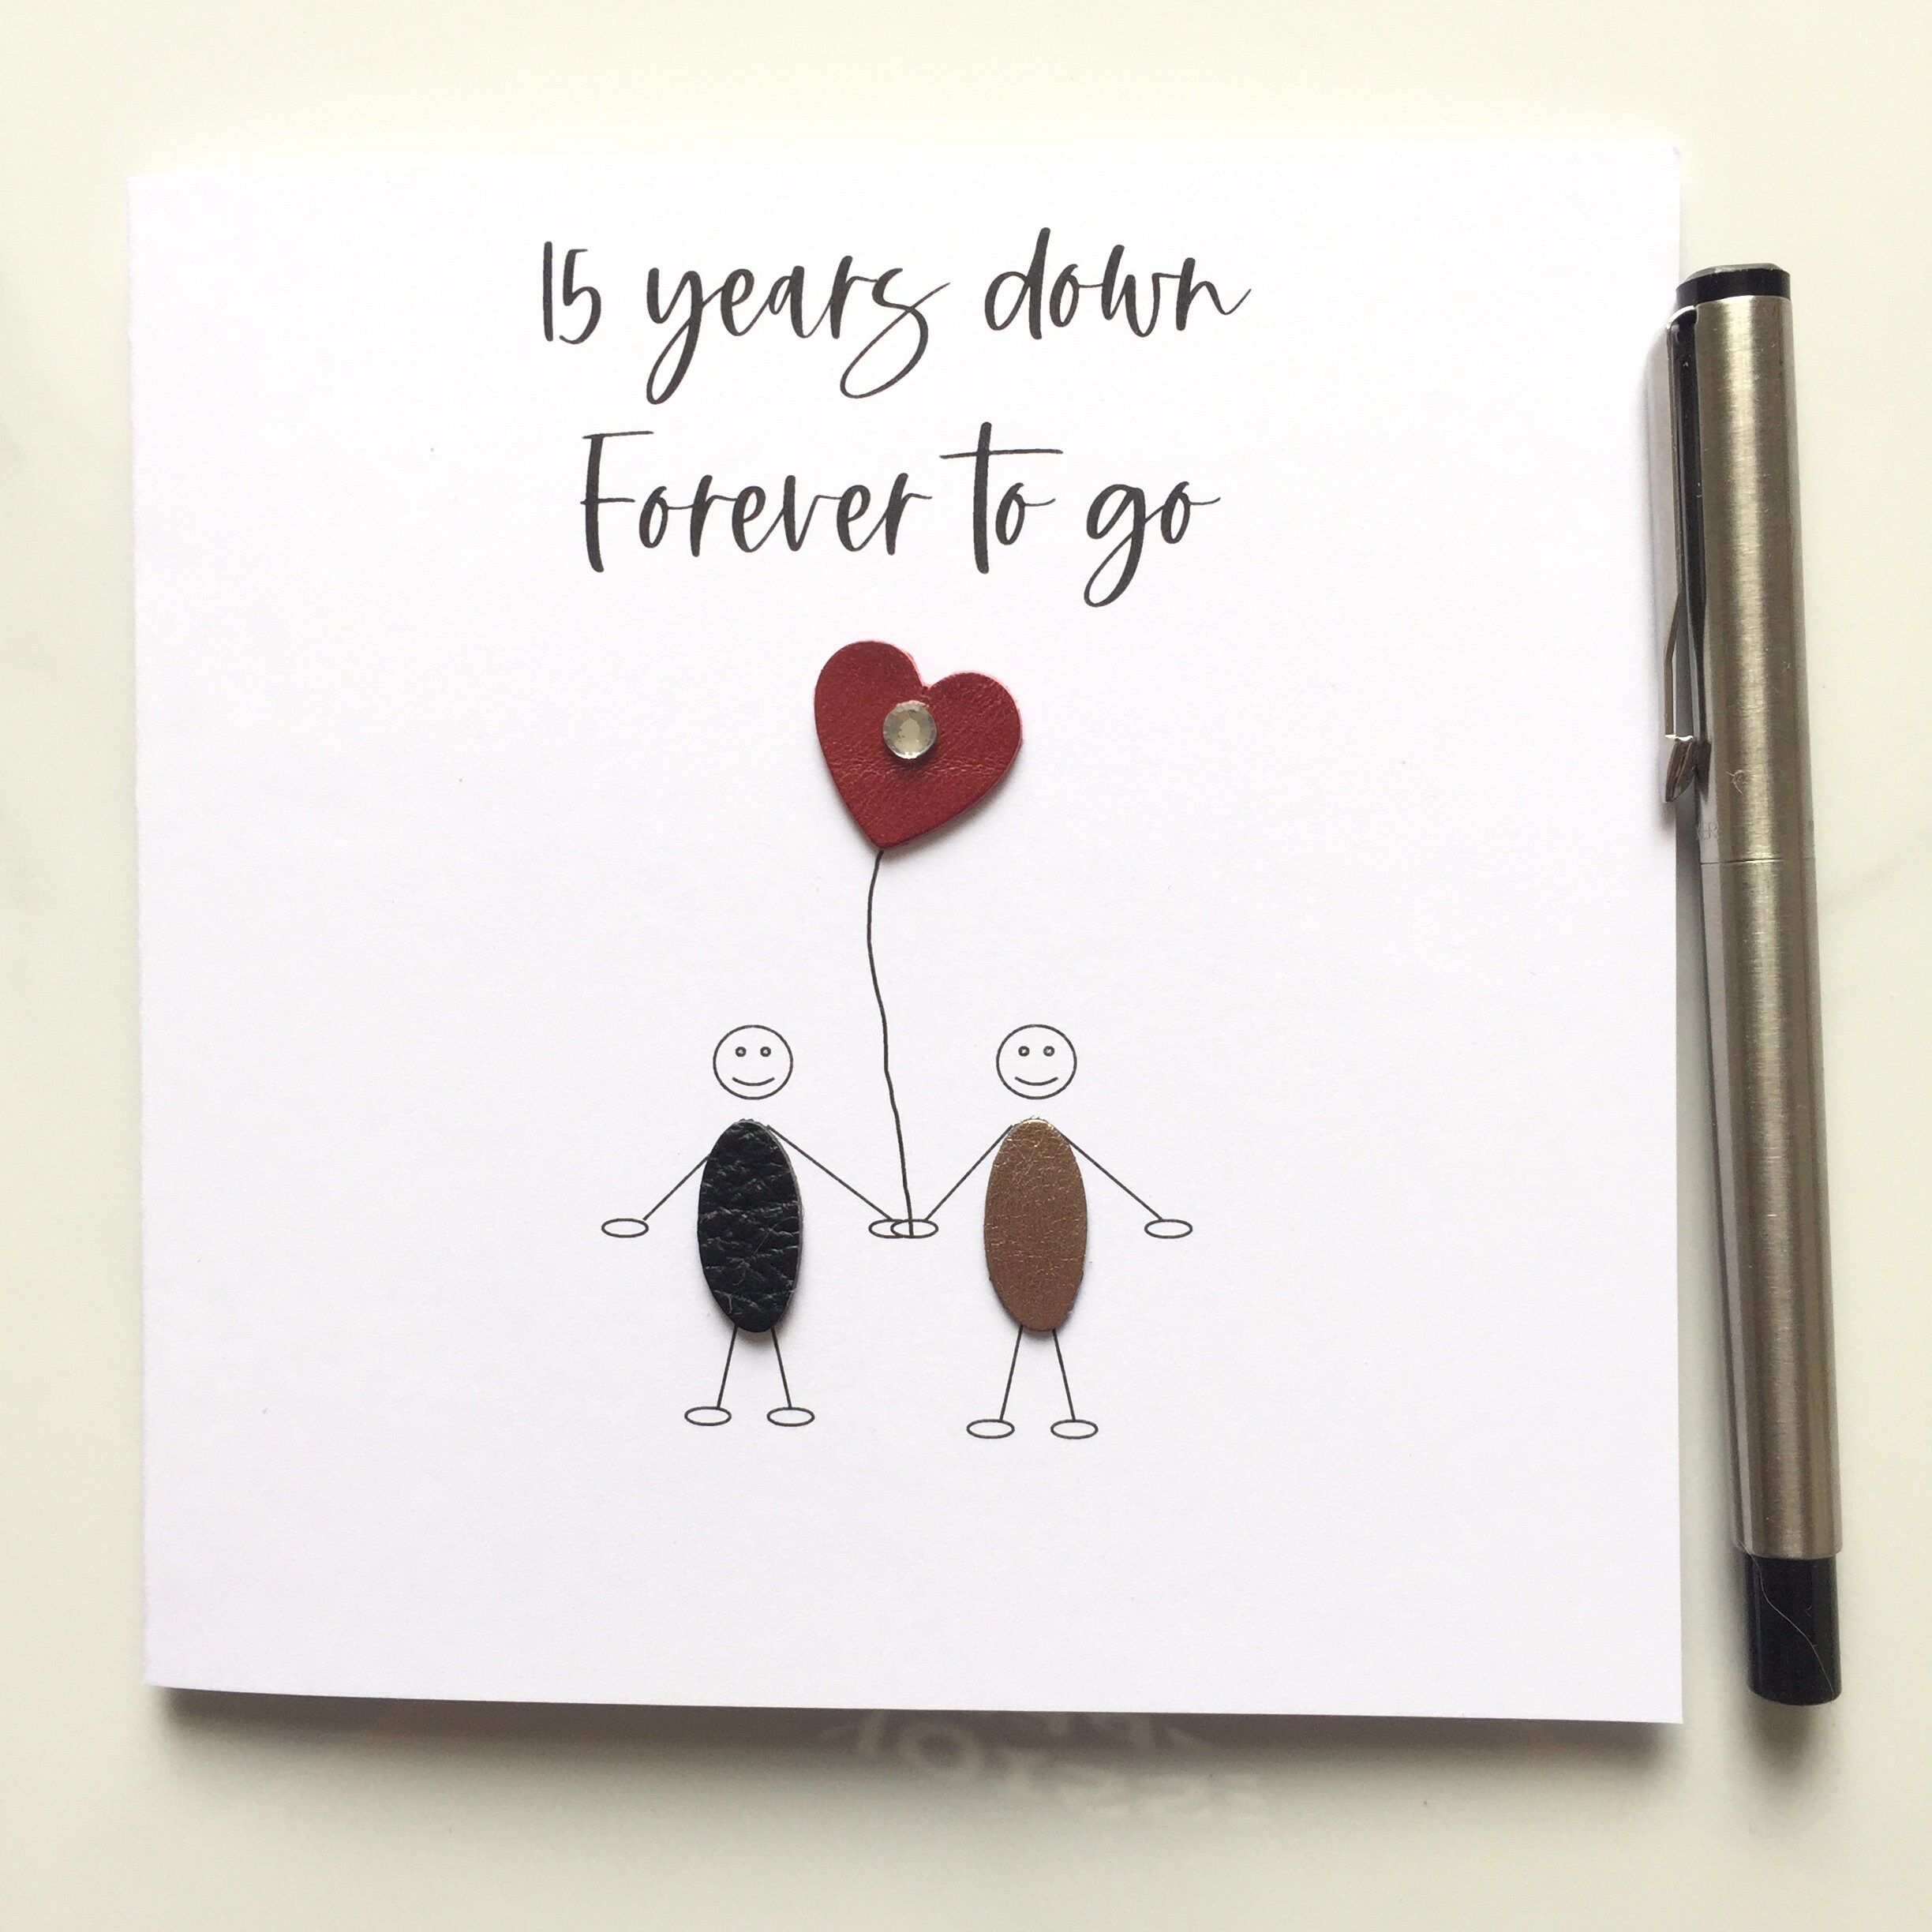 15 years down
Forever to go